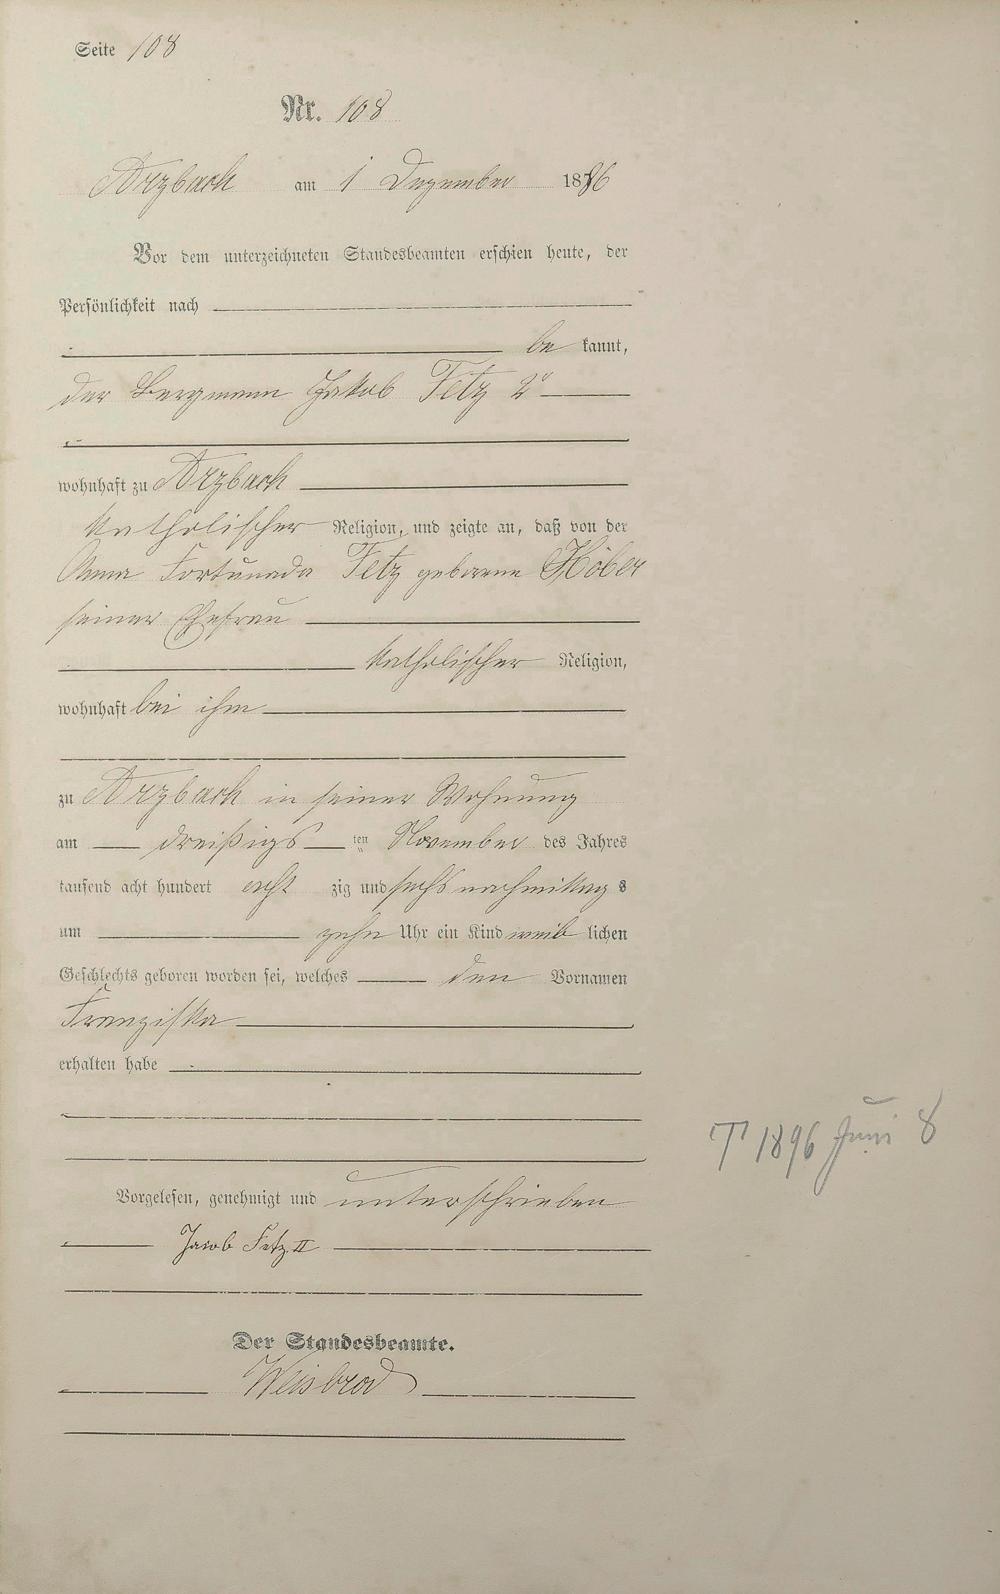 Seite 108
Nr. 108
Arzbach am 1 Dezember 1886
Vor dem unterzeichneten Standesbeamten erschien heute, der
Persönlichkeit nach
be kannt,
der Bergmann Jakob Fetz 2r
wohnhaft zu Arzbach
katholischer Religion, und zeigte an, daß von der
Anna Fortunada Fetz geborene Höber
seiner Ehefrau
katholischer Religion,
wohnhaft bei ihm
zu Arzbach in seiner Wohnung
am dreißigs ten November des Jahres
tausend acht hundert acht zig und sechs nachmittag s
um zehn Uhr ein Kind weib lichen
Geschlechts geboren worden sei, welches den Vornamen
Franziska
erhalten habe
T 1896 Juni 8
Vorgelesen, genehmigt und unterschrieben
Jacob Fetz II
Der Standesbeamte.
Weisbrod